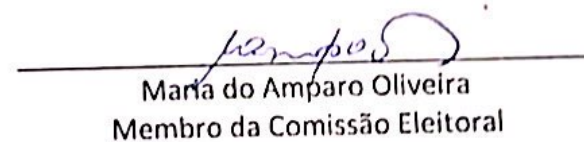 Maria do Amparo Oliveira
Membro da Comissão Eleitoral